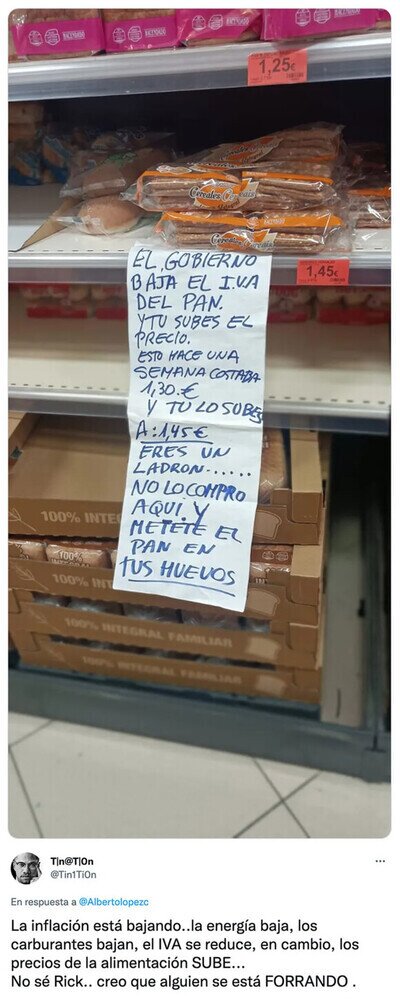 1,25€
Cereales Cereals
Cereales Cereals
1,45€
EL GOBIERNO
BAJA EL I.VA
DEL PAN.
Y TU SUBES EL
PRECIO.
ESTO HACE UNA
SEMANA COSTABA
1,30.€
Y TU LO SUBES
A: 1,45€
ERES UN
LADRON......
NO LO COMPRO
AQUI. Y
METETE EL
PAN EN
TUS HUEVOS
100% INTE
100%
100% INTE
INTEGRAL FAMILIAR
T|n@T|0n
@Tin1Ti0n
En respuesta a @Albertolopezc
La inflación está bajando..la energía baja, los
carburantes bajan, el IVA se reduce, en cambio, los
precios de la alimentación SUBE...
No sé Rick.. creo que alguien se está FORRANDO .